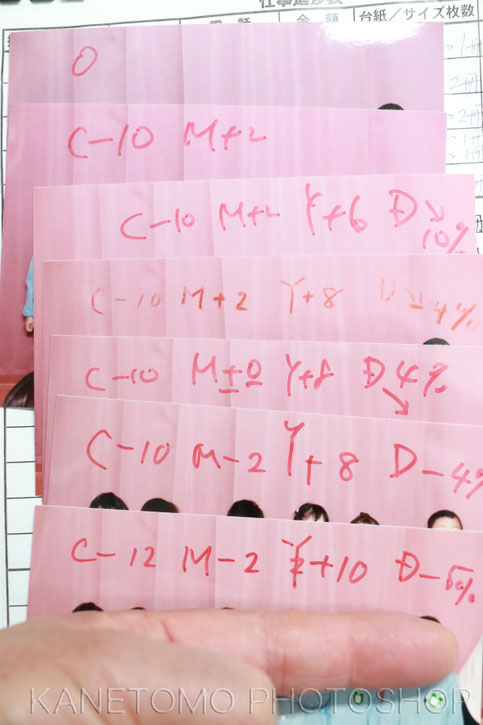 台紙／サイズ枚数
0
C-10 M+2
C-10 M+2 Y+6 D↘10%
C-10 M+2 Y+8 D↘4%
C-10 M±0 Y+8 D↘4%
C-10 M-2 Y+8 D-4%
C-12 M-2 Y+10 D-5%
KANETOMO PHOTOSHOP